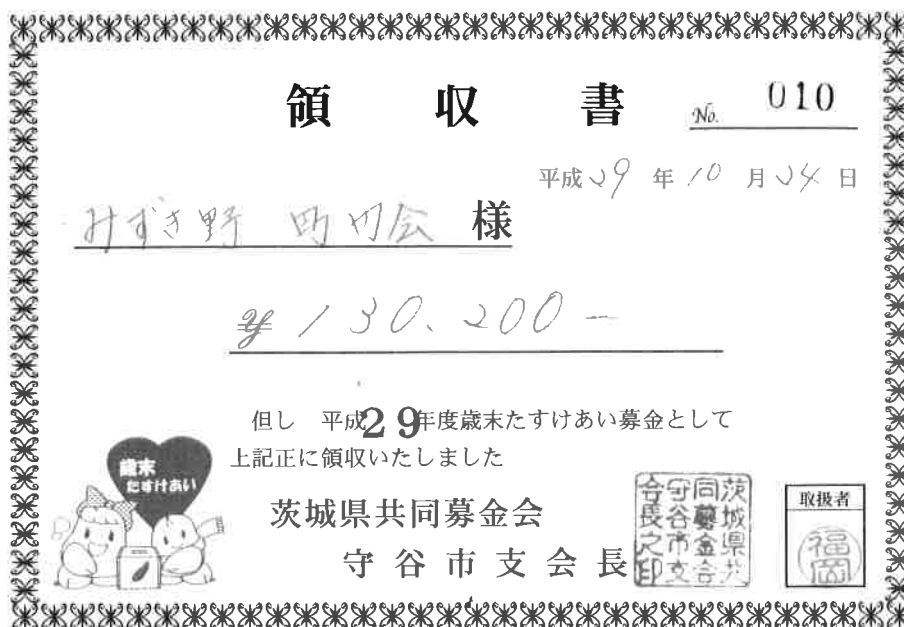 領 収 書
No. 010
平成29年10月24日
みずき野 町内会 様
¥130,200-
但し 平成29年度歳末たすけあい募金として
上記正に領収いたしました
歳末
たすけあい
茨城県共同募金会
守谷市支会長
茨城県共
同募金会
守谷市支
会長之印
取扱者
福岡